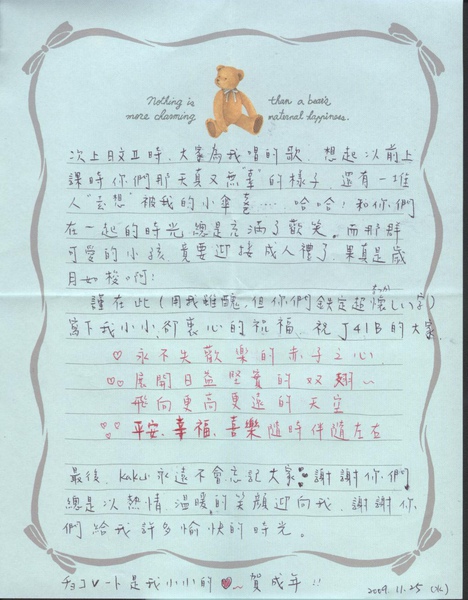 Nothing is more charming than a bear's maternal happiness.
次上日文II時、大家為我唱的歌、想起以前上
課時你們那天真又無"辜"的樣子、還有一堆
人"妄想"被我的小拿 … 哈哈！和你們
在一起的時光總是充滿了歡笑。而那群
可愛的小孩、竟要迎接成人禮了、果真是歲
月如梭啊！
謹在此(用我雖醜、但你們鉄定超懐しい字)
寫下我小小、卻衷心的祝福、祝J41B的大家
♡永不失歡樂的赤子之心
♡展開日益堅實的双翅～
飛向更高更遠的天空
♡平安、幸福、喜樂隨時伴隨左右
最後、kaku永遠不會忘記大家 謝謝你們
總是以熱情、溫暖的笑顏迎向我、謝謝你
們給我許多愉快的時光。
チョコレート是我小小的♥～賀成年!!
2009.11.25